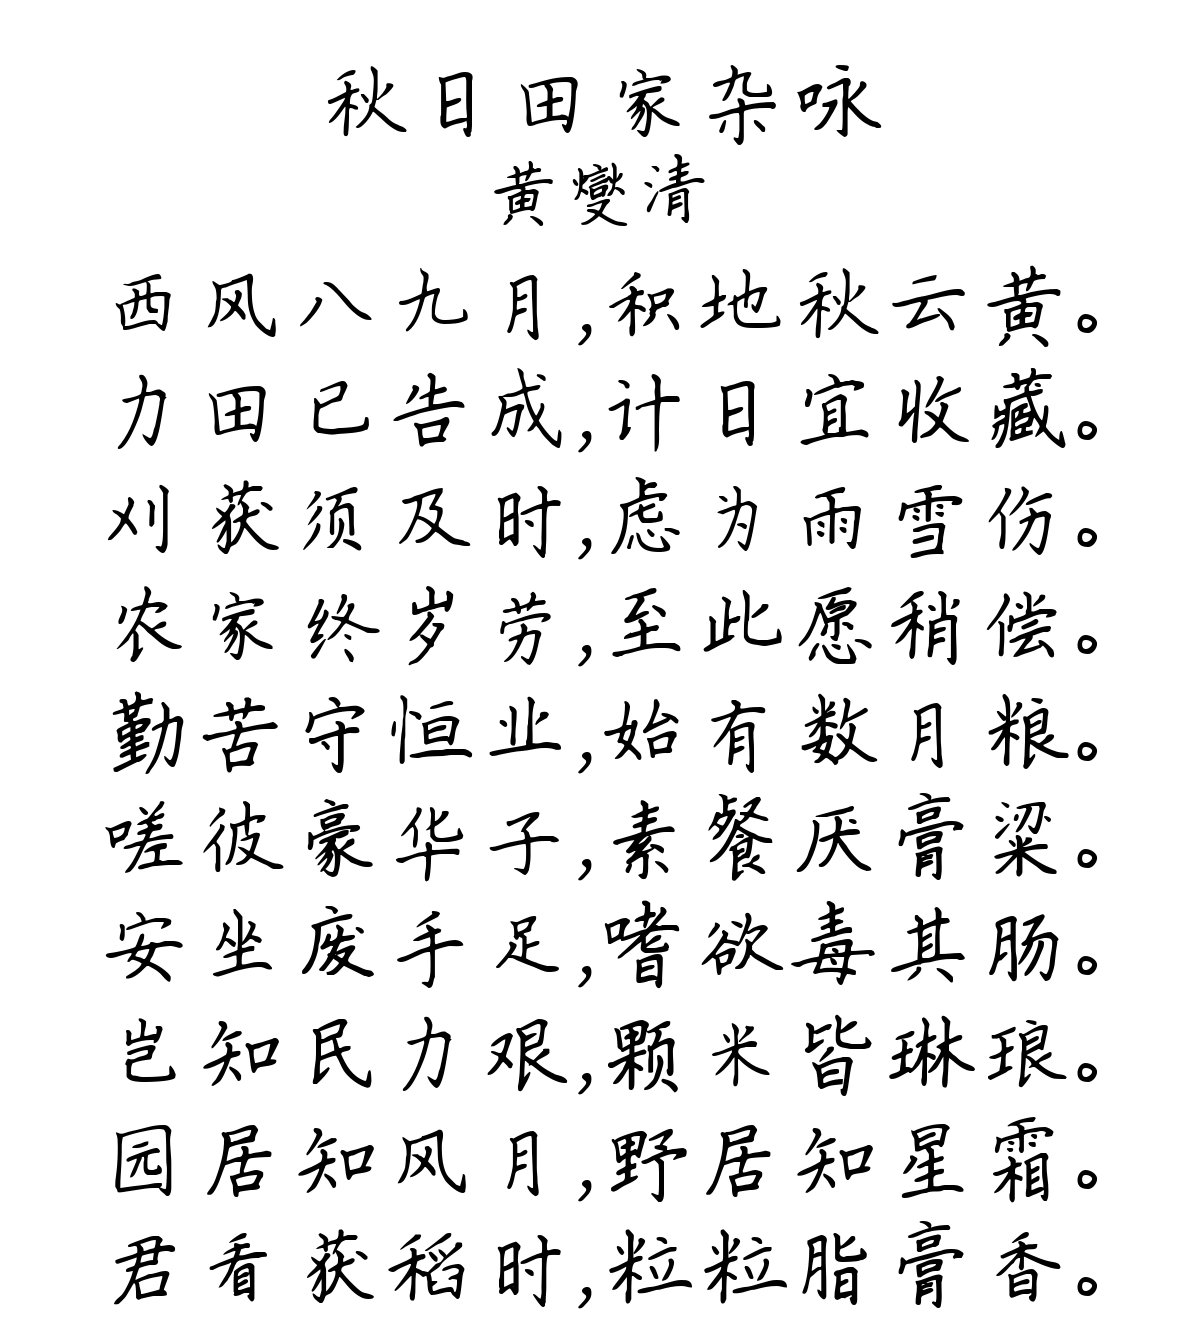 秋日田家杂咏
黄燮清
西风八九月,积地秋云黄。
力田已告成,计日宜收藏。
刈获须及时,虑为雨雪伤。
农家终岁劳,至此愿稍偿。
勤苦守恒业,始有数月粮。
嗟彼豪华子,素餐厌膏粱。
安坐废手足,嗜欲毒其肠。
岂知民力艰,颗米皆琳琅。
园居知风月,野居知星霜。
君看获稻时,粒粒脂膏香。